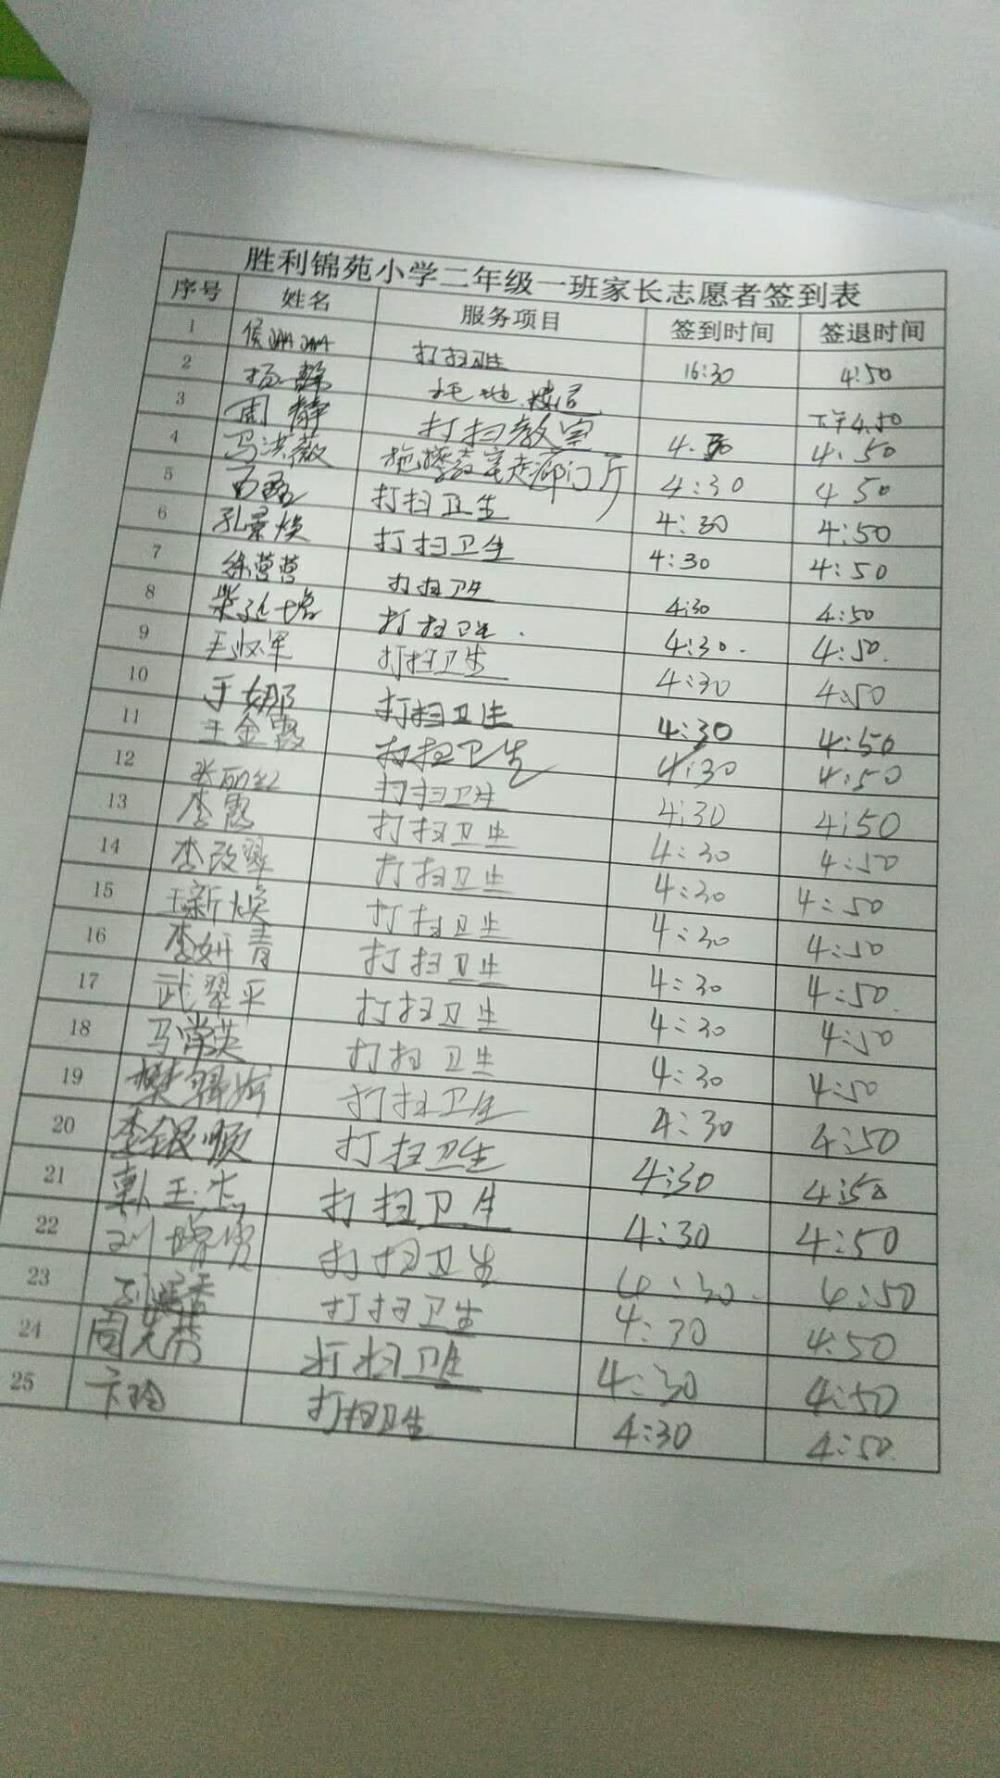 胜利锦苑小学二年级一班家长志愿者签到表
序号 姓名 服务项目 签到时间 签退时间
1 侯 打扫卫生 16:30 4:50
2 杨静 拖地 下午4.50
3 周静 打扫教室 4.30 4.50
4 马洪薇 走廊门厅 4:30 4 50
5 打扫卫生 4:30 4:50
6 孔景焕 打扫卫生 4:30 4:50
7 徐营营 打扫卫生 4:30 4:50
8 柴 打扫卫生. 4:30. 4:50.
9 王 军 打扫卫生 4:30 4:50
10 于娜 打扫卫生 4:30 4:50
11 王金霞 打扫卫生 4:30 4:50
12 张丽红 打扫卫生 4:30 4:50
13 李霞 打扫卫生 4:30 4:50
14 李改翠 打扫卫生 4:30 4:50
15 王新焕 打扫卫生 4:30 4:50
16 李妍青 打扫卫生 4:30 4:50.
17 武翠平 打扫卫生 4:30 4:50
18 马常英 打扫卫生 4:30 4:50
19 樊 打扫卫生 4:30 4:50
20 李银顺 打扫卫生 4:30 4:50
21 打扫卫生 4:30 4:50
22 刘 打扫卫生 4:30. 4:50
23 香 打扫卫生 4:30 4:50
24 周 打扫卫生 4:30 4:50
25 卞玲 打扫卫生 4:30 4:50.